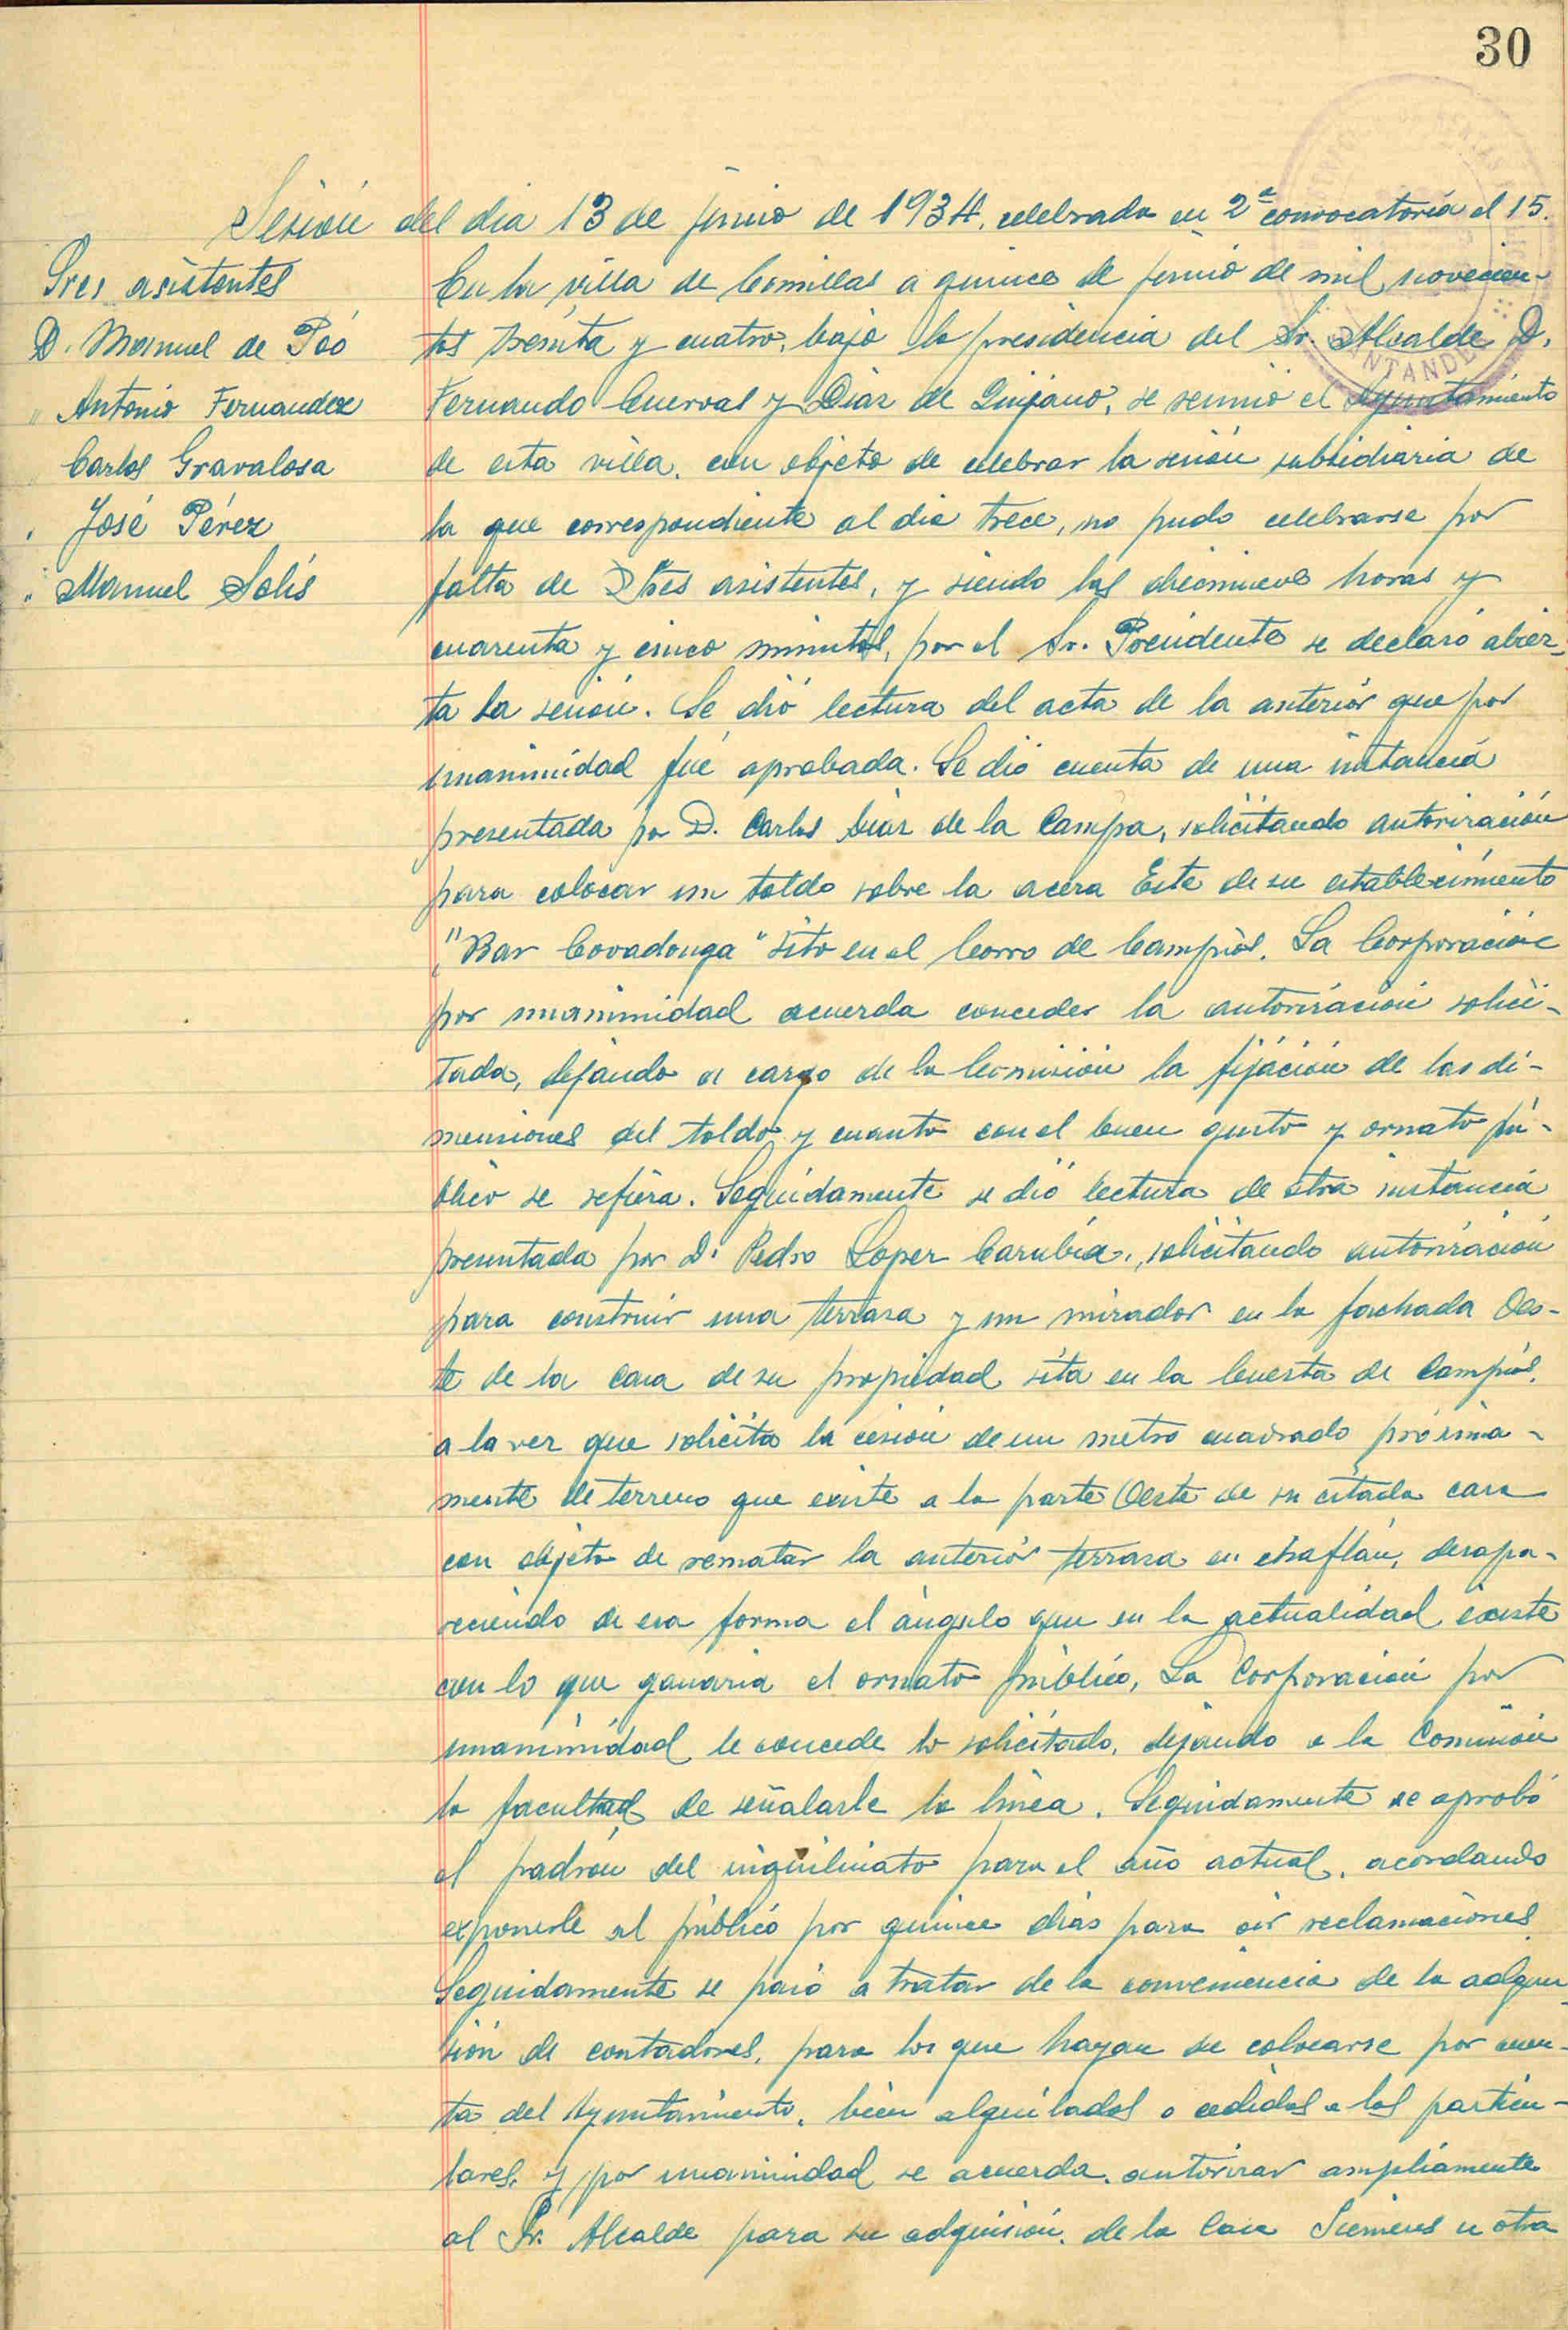 30
Sesión del dia 13 de junio de 1934, celebrada en 2ª convocatoria el 15.
Sres asistentes
D. Manuel de Poó
" Antonio Fernandez
" Carlos Gravalosa
" José Pérez
" Manuel Solís
En la villa de Comillas a quince de junio de mil novecien-
tos treinta y cuatro, bajo la presidencia del Sr. Alcalde D.
Fernando Cuerval y Díaz de Quijano, se reunió el Ayuntamiento
de esta villa, con objeto de celebrar la sesión subsidiaria de
la que correspondiente al dia trece, no pudo celebrarse por
falta de Sres asistentes, y siendo las diecinueve horas y
cuarenta y cinco minutos, por el Sr. Presidente se declaró abier-
ta la sesión. Se dió lectura del acta de la anterior que por
unanimidad fué aprobada. Se dió cuenta de una instancia
presentada por D. Carlos Díaz de la Campa, solicitando autorización
para colocar un toldo sobre la acera Este de su establecimiento
"Bar Covadonga" sito en el Corro de Campíos. La Corporación
por unanimidad acuerda conceder la autorización solici-
tada, dejando a cargo de la Comisión la fijación de las di-
mensiones del toldo y cuanto con el buen gusto y ornato pú-
blico se refiera. Seguidamente se dió lectura de otra instancia
presentada por D. Pedro Lopez Carubia, solicitando autorización
para construir una terraza y un mirador en la fachada Oes-
te de la casa de su propiedad sita en la Cuesta de Campíos,
a la vez que solicita la cesión de un metro cuadrado próxima-
mente de terreno que existe a la parte Oeste de su citada casa
con objeto de rematar la anterior terraza en chaflán, desapa-
reciendo de esa forma el ángulo que en la actualidad existe
con lo que ganaria el ornato público, La Corporación por
unanimidad le concede lo solicitado, dejando a la Comisión
la facultad de señalarle la linea. Seguidamente se aprobó
el padrón del inquilinato para el año actual, acordando
exponerle al público por quince dias para oir reclamaciones.
Seguidamente se pasó a tratar de la conveniencia de la adqui-
sión de contadores, para los que hayan de colocarse por cuen-
ta del Ayuntamiento, bien alquilados o cedidos a los particu-
lares, y por unanimidad se acuerda, autorizar ampliamente
al Sr. Alcalde para su adquisión, de la Casa Siemens u otra